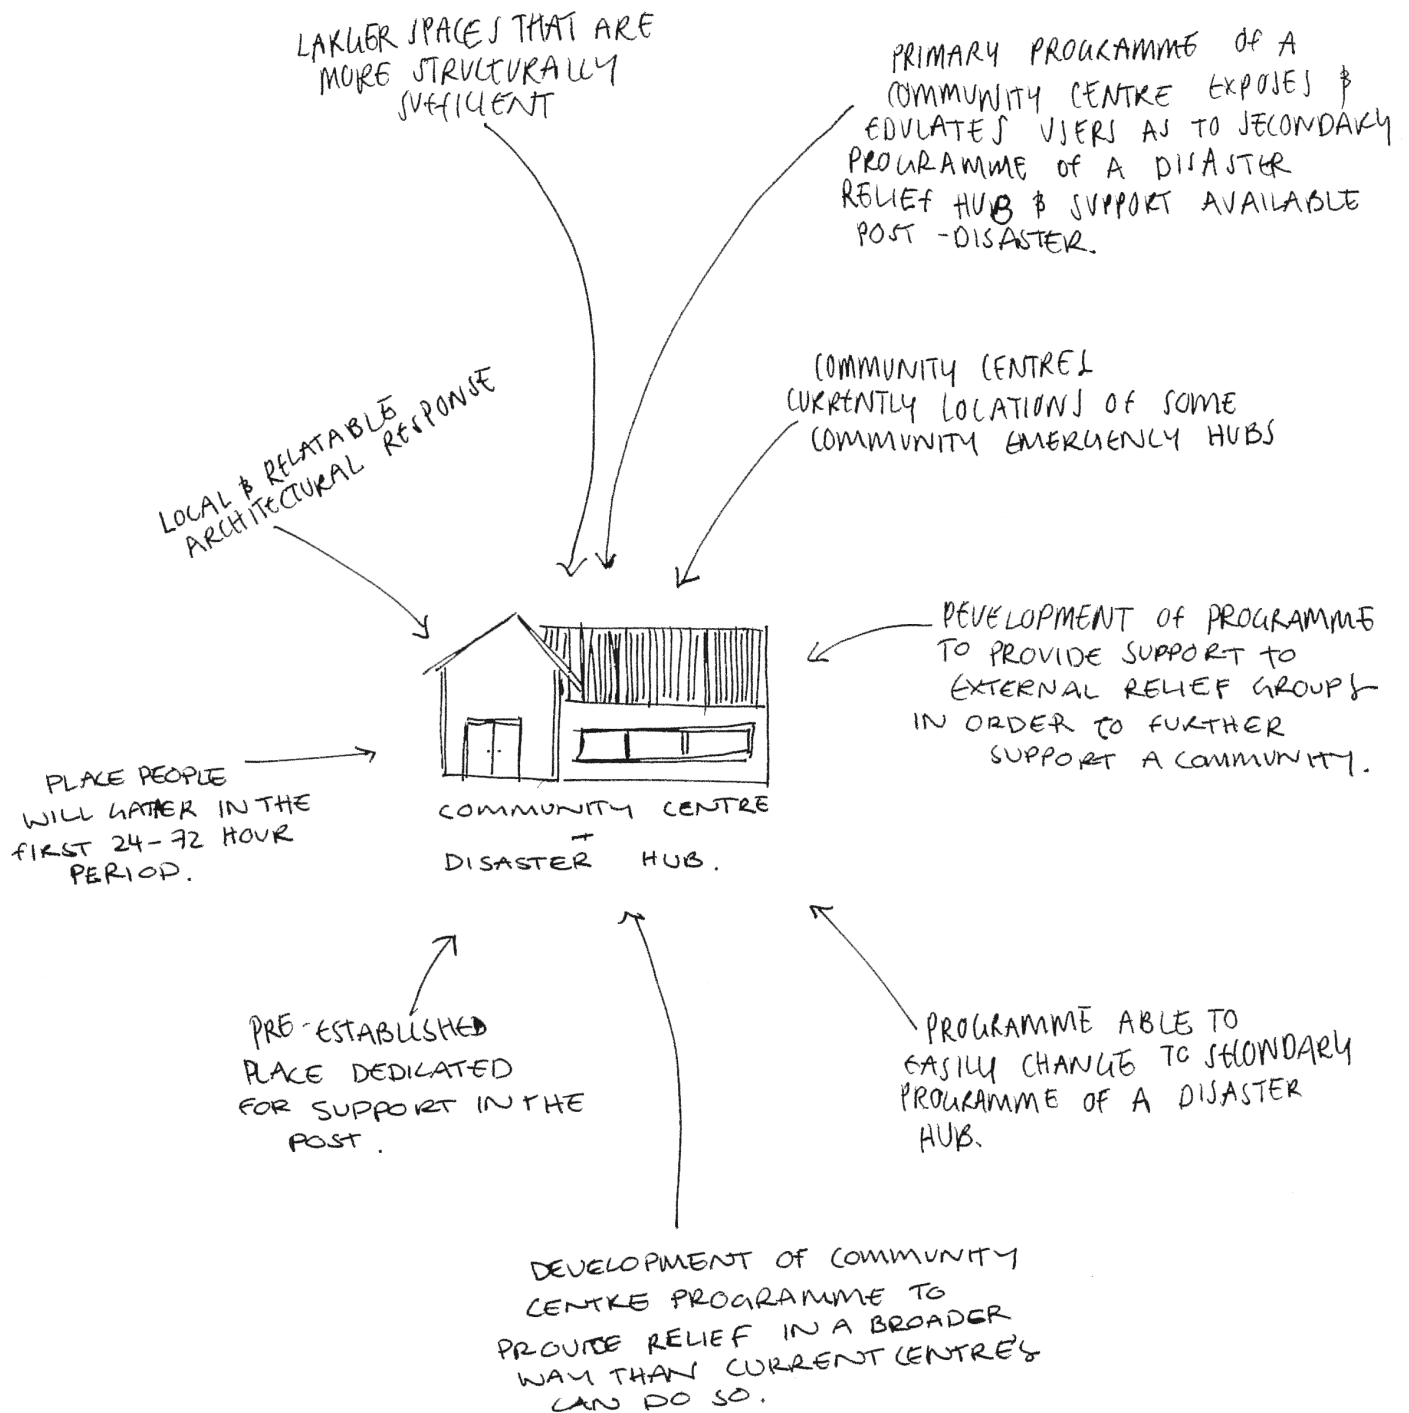 LARGER SPACES THAT ARE
MORE STRUCTURALLY
SUFFICIENT
PRIMARY PROGRAMME OF A
COMMUNITY CENTRE EXPOSES &
EDUCATES USERS AS TO SECONDARY
PROGRAMME OF A DISASTER
RELIEF HUB & SUPPORT AVAILABLE
POST-DISASTER.
COMMUNITY CENTRES
CURRENTLY LOCATIONS OF SOME
COMMUNITY EMERGENCY HUBS
LOCAL & RELATABLE
ARCHITECTURAL RESPONSE
DEVELOPMENT OF PROGRAMME
TO PROVIDE SUPPORT TO
EXTERNAL RELIEF GROUPS
IN ORDER TO FURTHER
SUPPORT A COMMUNITY.
PLACE PEOPLE
WILL GATHER IN THE
FIRST 24-72 HOUR
PERIOD.
COMMUNITY CENTRE
+
DISASTER HUB.
PRE-ESTABLISHED
PLACE DEDICATED
FOR SUPPORT IN THE
POST.
PROGRAMME ABLE TO
EASILY CHANGE TO SECONDARY
PROGRAMME OF A DISASTER
HUB.
DEVELOPMENT OF COMMUNITY
CENTRE PROGRAMME TO
PROVIDE RELIEF IN A BROADER
WAY THAN CURRENT CENTRE'S
CAN DO SO.